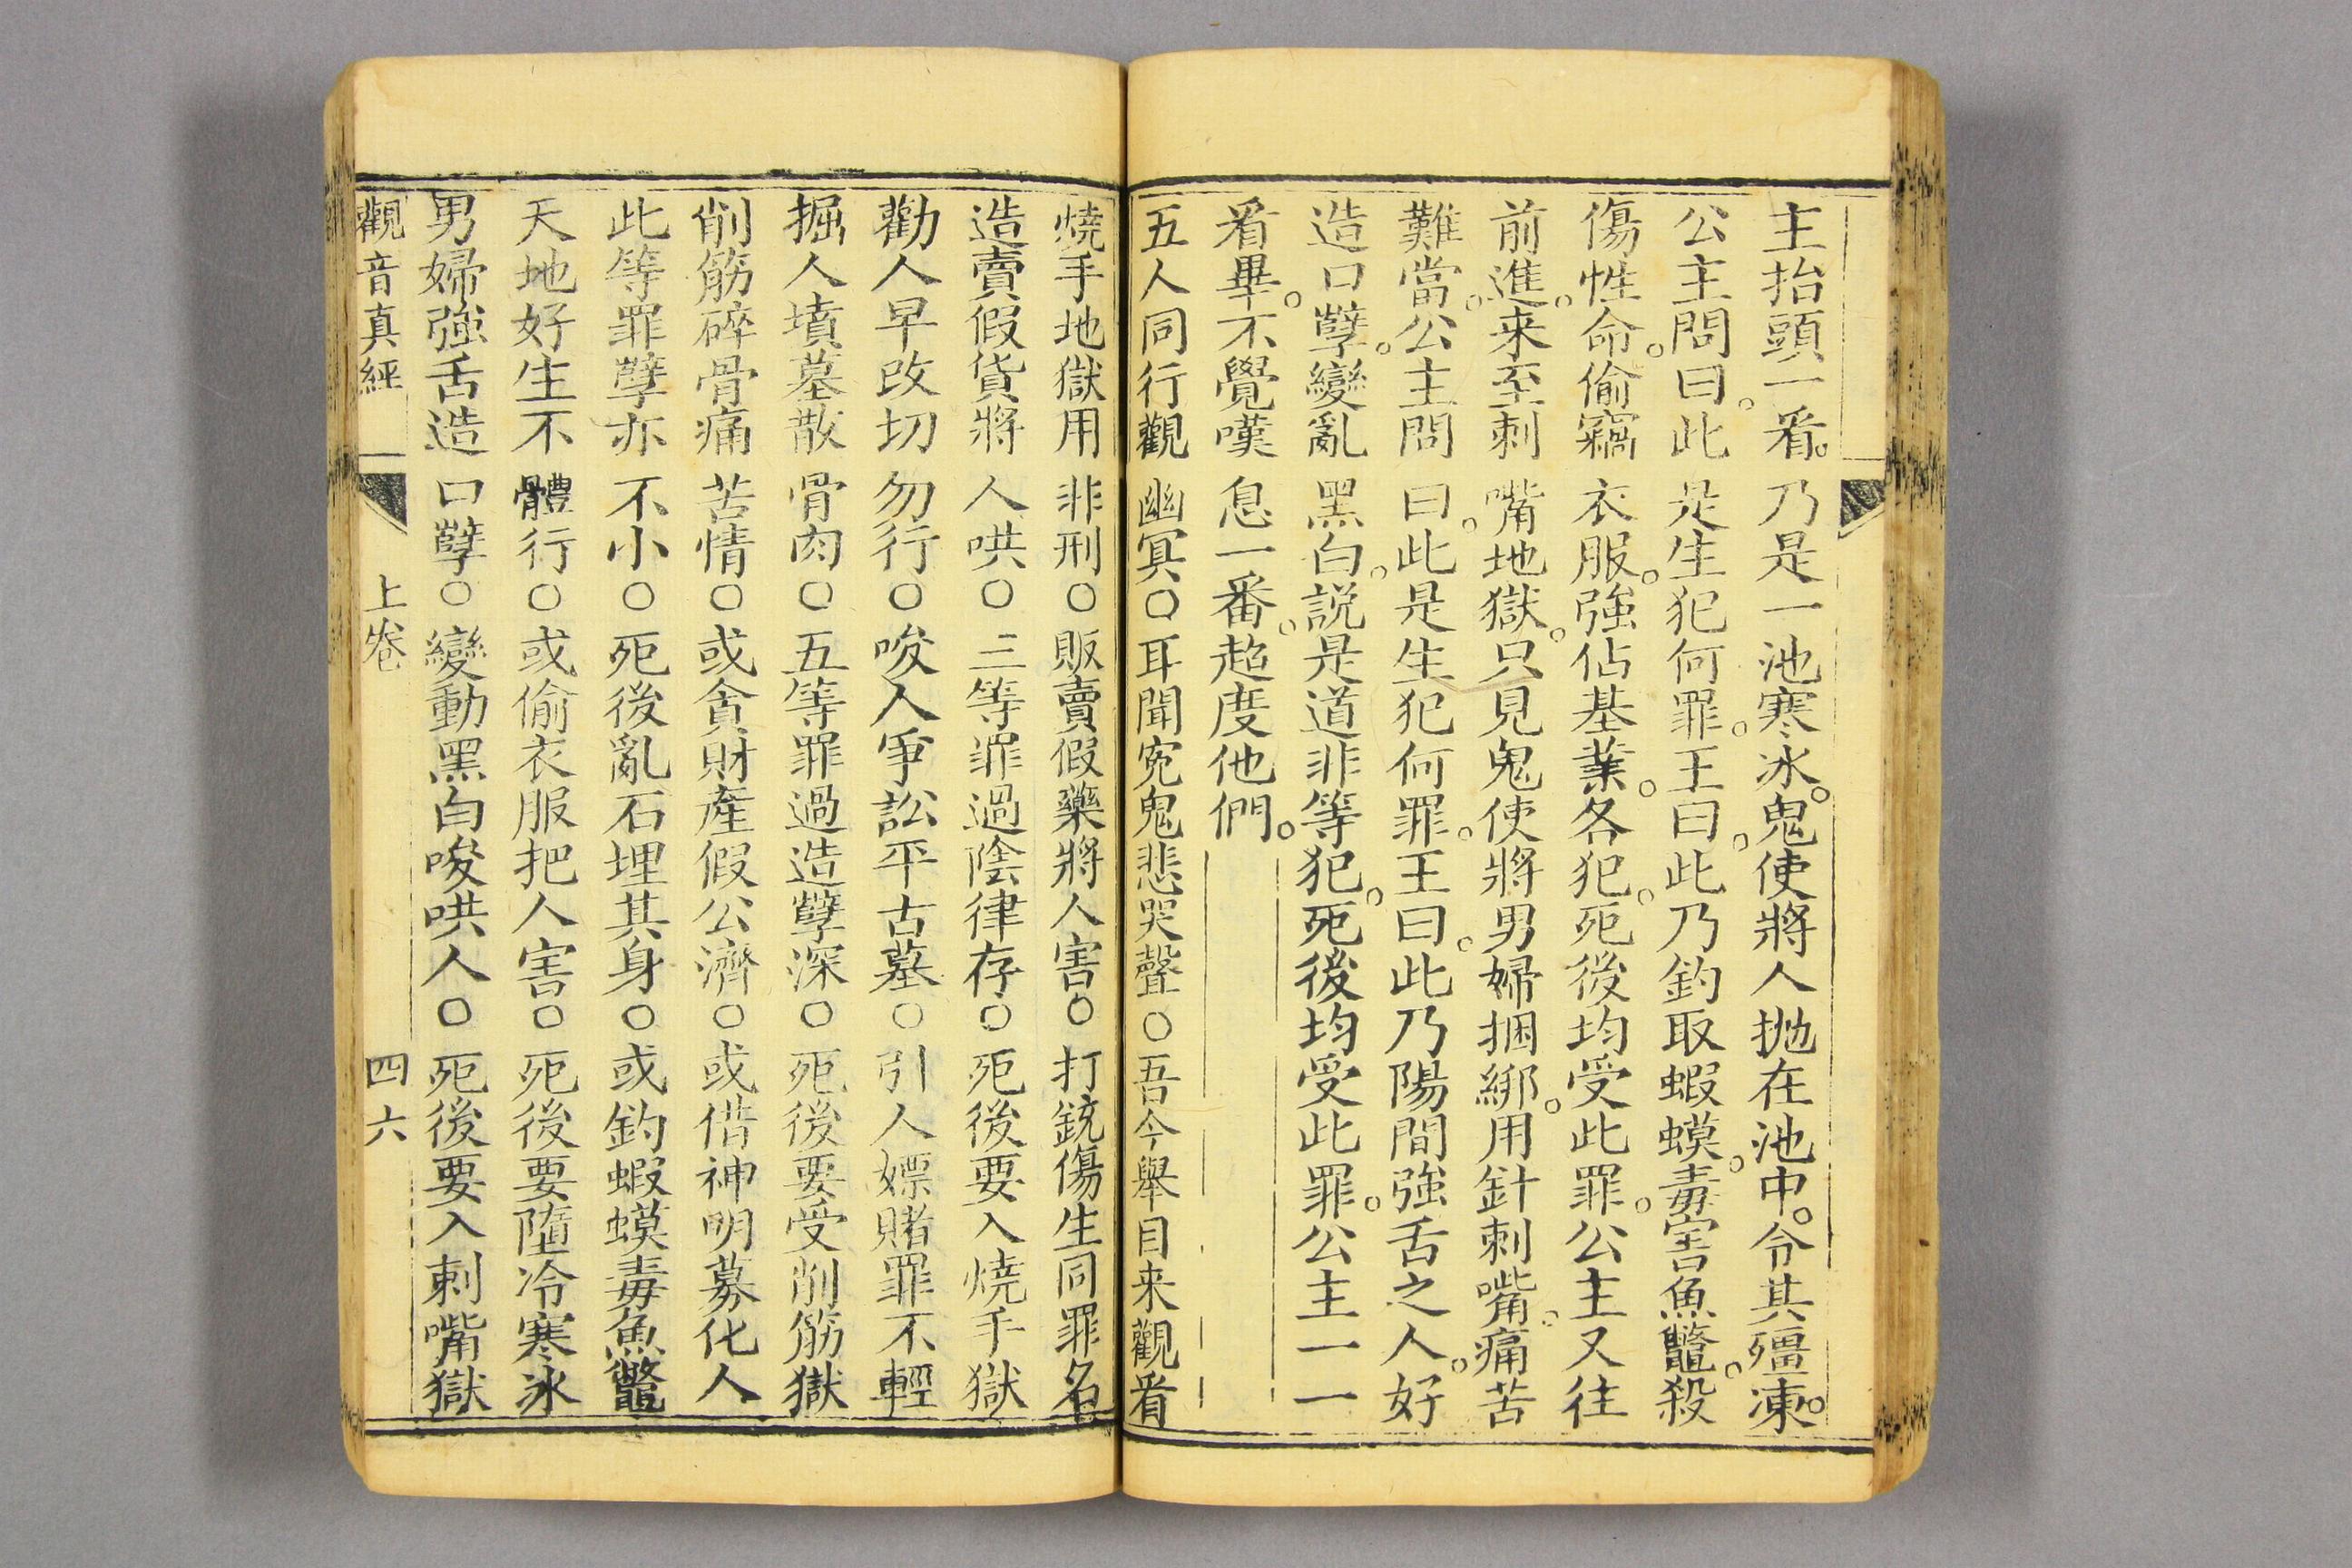 主抬頭一看。乃是一池寒冰。鬼使將人拋在池中。令其殭凍。
公主問曰。此是生犯何罪。王曰。此乃釣取蝦蟆。毒害魚鼈。殺
傷性命。偷竊衣服。強佔基業。各犯。死後均受此罪。公主又往
前進。来至刺嘴地獄。只見鬼使將男婦捆綁。用針刺嘴。痛苦
難當。公主問曰。此是生犯何罪。王曰。此乃陽間強舌之人。好
造口孽。變亂黑白。説是道非等犯。死後均受此罪。公主一一
看畢。不覺嘆息一番。超度他們。
五人同行觀幽冥○耳聞寃鬼悲哭聲○吾今舉目来觀看
燒手地獄用非刑○販賣假藥將人害○打銃傷生同罪名
造賣假貨將人哄○三等罪過陰律存○死後要入燒手獄
勸人早改切勿行○唆人爭訟平古墓○引人嫖賭罪不輕
掘人墳墓散骨肉○五等罪過造孽深○死後要受削筋獄
削筋碎骨痛苦情○或貪財產假公濟○或借神明募化人
此等罪孽亦不小○死後亂石埋其身○或釣蝦蟆毒魚鼈
天地好生不體行○或偷衣服把人害○死後要墮冷寒冰
男婦強舌造口孽○變動黑白唆哄人○死後要入刺嘴獄
觀音真經 上卷 四六